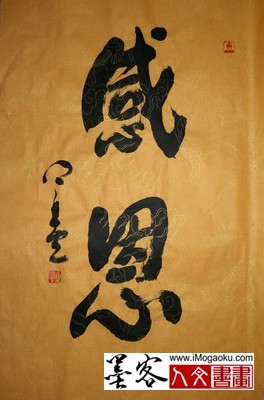 感恩
墨客
www.iMogaoku.com
人文書畫